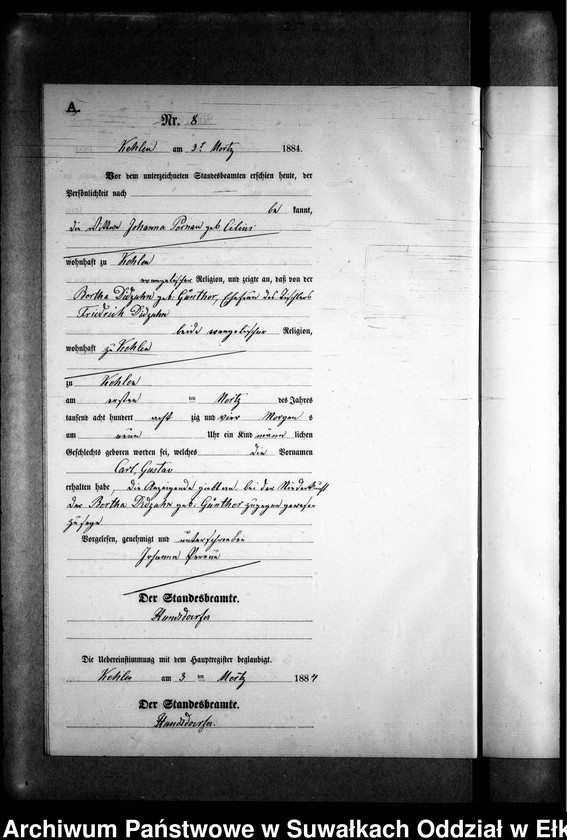 A.
Nr. 8
Kehlen am 3t Mertz 1884.
Vor dem unterzeichneten Standesbeamten erschien heute, der
Persönlichkeit nach
be kannt,
die Wittwe Johanna geb
wohnhaft zu Kehlen
evangelischer Religion, und zeigte an, daß von der
Bertha Didzuhn geb. Günther, Ehefrau des Tischlers
Friedrich Didzuhn
beide evangelischer Religion,
wohnhaft zu Kehlen
zu Kehlen
am ersten ten Mertz des Jahres
tausend acht hundert acht zig und vier Morgen s
um neun Uhr ein Kind männ lichen
Geschlechts geboren worden sei, welches die Vornamen
Carl, Gustav
erhalten habe, die Anzeigende bei der Niederkunft
der Bertha Didzuhn geb. Günther zugegen gewesen
zu sein
Vorgelesen, genehmigt und unterschrieben
Johanna
Der Standesbeamte.
Die Uebereinstimmung mit dem Hauptregister beglaubigt.
Kehlen am 3 ten Mertz 1884
Der Standesbeamte.
Archiwum Państwowe w Suwałkach Oddział w Ełk